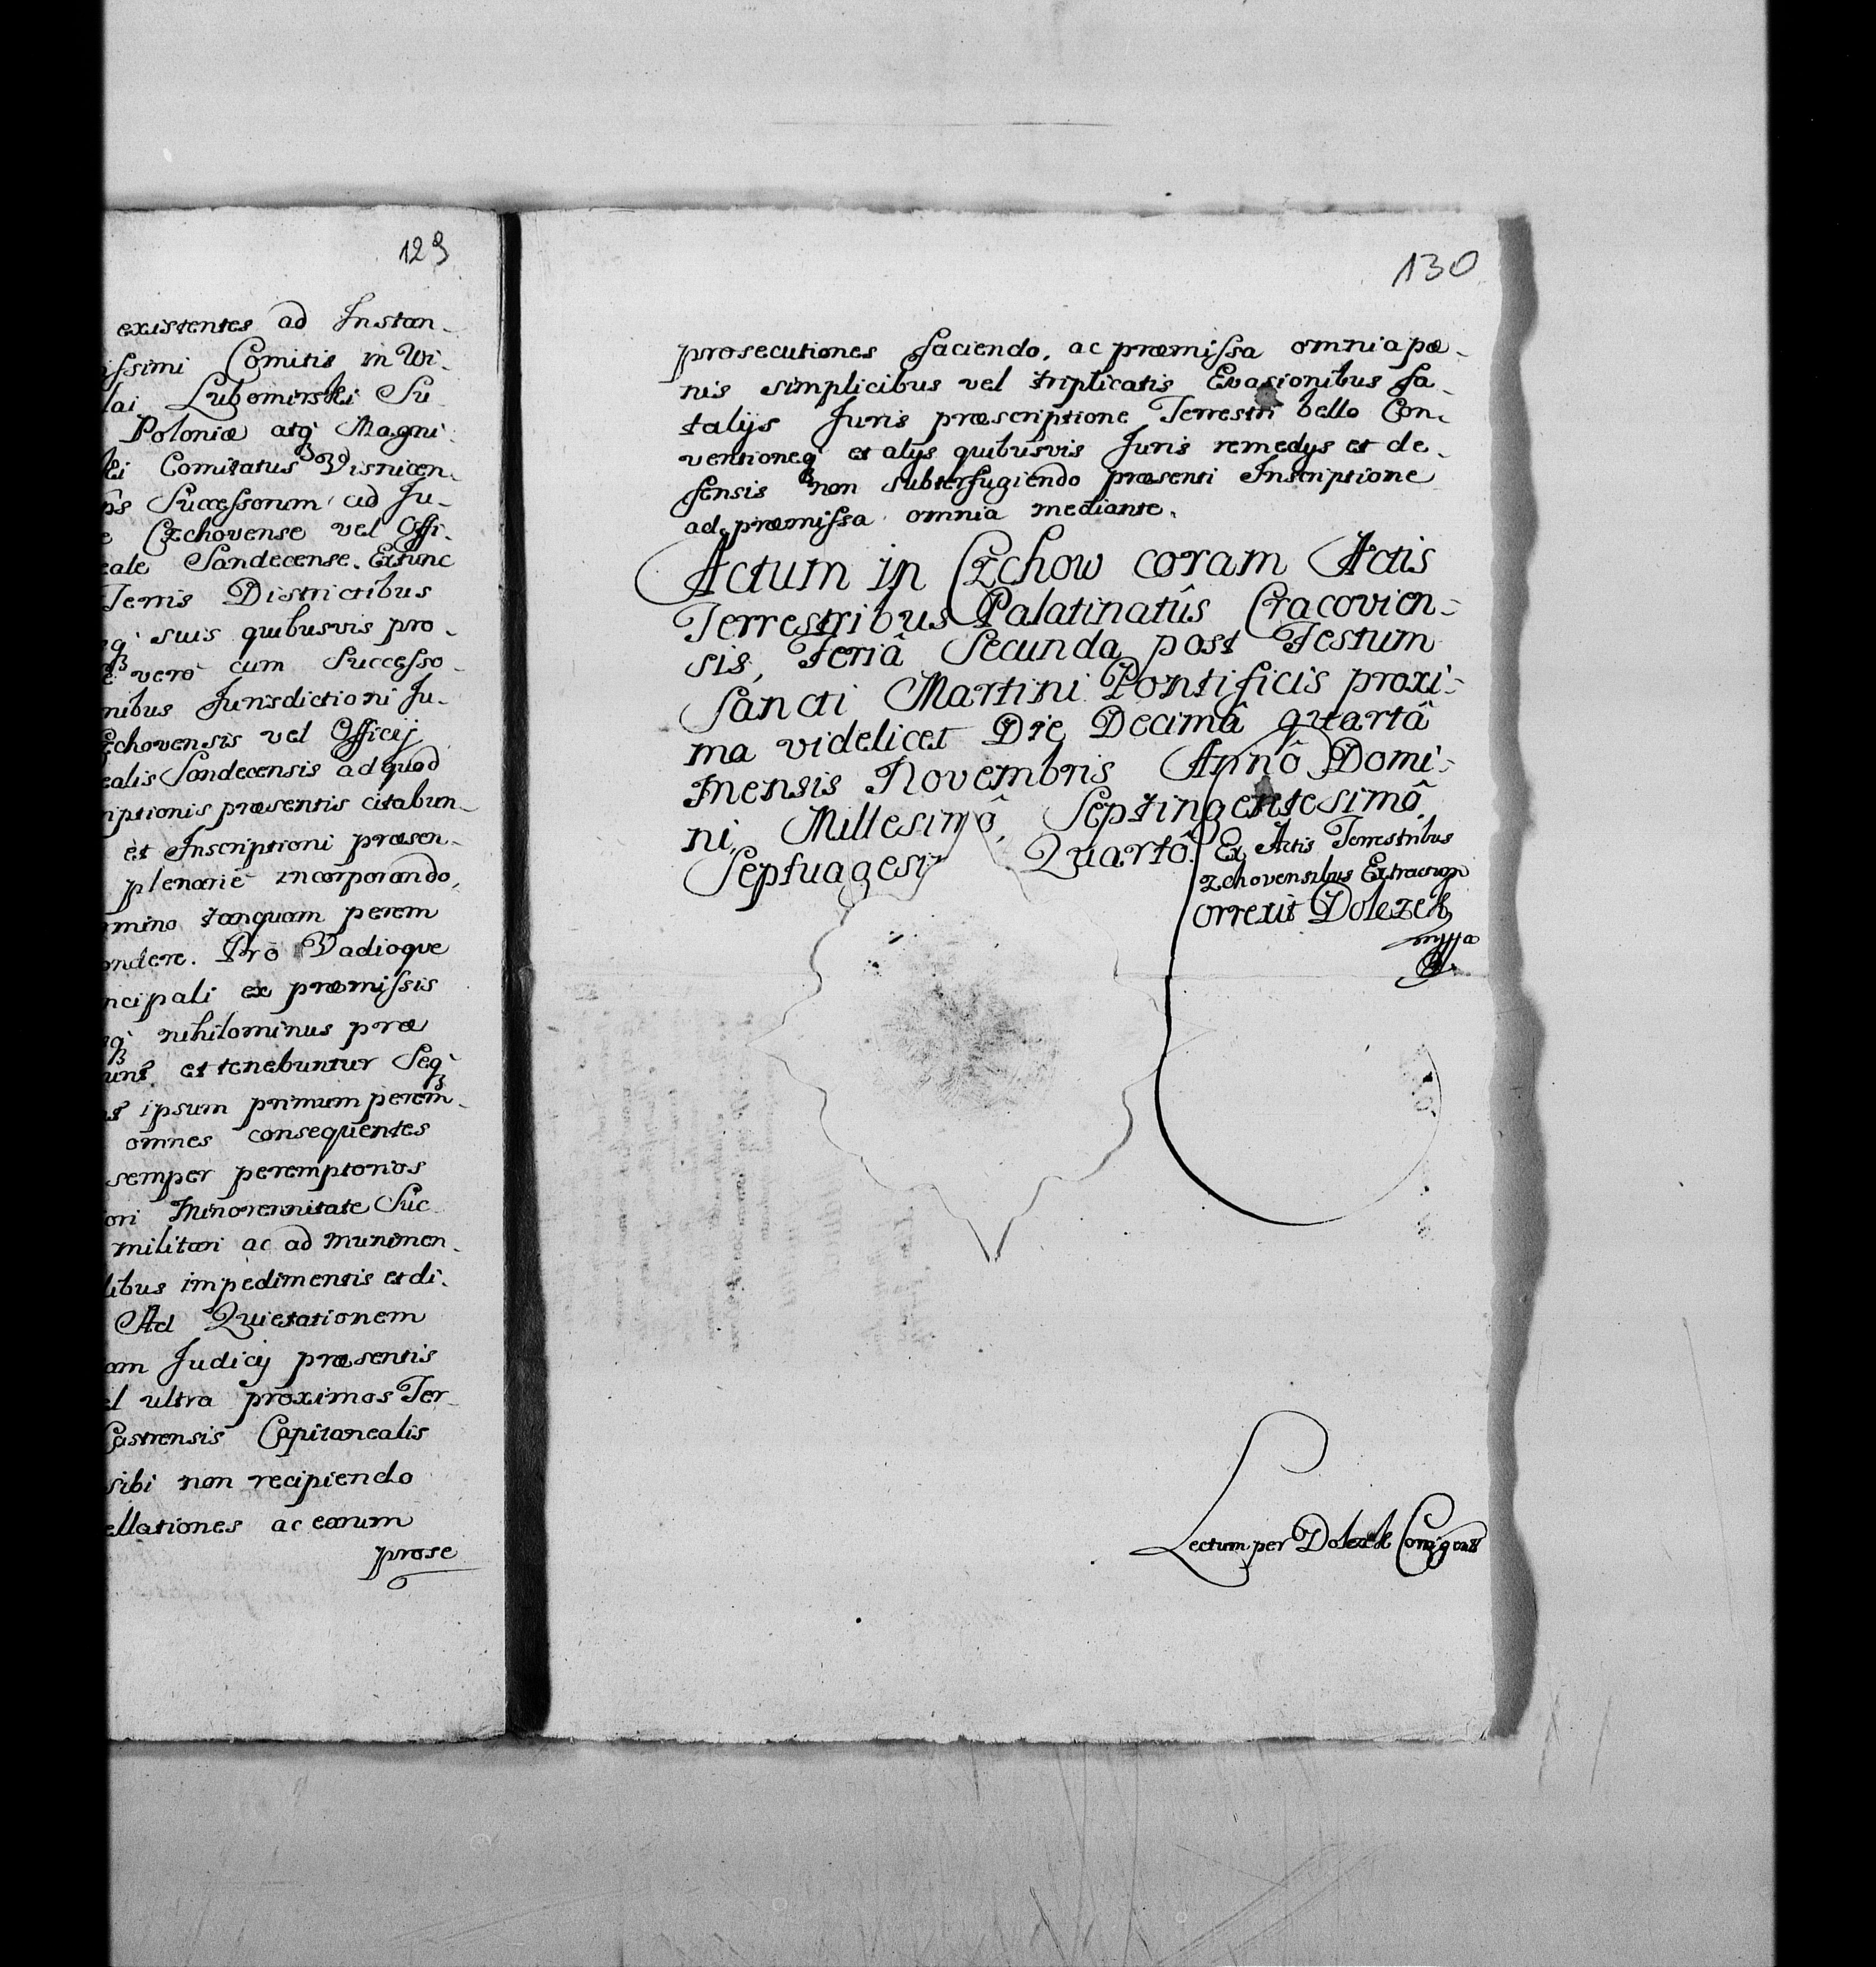 129
existentes ad Instan-
issimi Comitis in Wi-
lai Lubomirski Su
Poloniæ atq Magni
ki Comitatus Visnicen-
Successorum ad Ju-
Czchovense vel Offi-
eale Sandecense. Extunc
Terris Districtibus
suis quibusvis pro-
vero cum Successo-
nibus Jurisdictioni Ju-
zchovensis vel Officij
ealis Sandecensis ad quod
riptionis præsentis citabun-
et Inscriptioni præsen-
plenarie incorporando,
rmino tanquam perem
ondere. Pro Vadioque
ncipali ex præmissis
nihilominus præ
et tenebuntur Seq
ipsum primum perem-
omnes consequentes
semper peremptorios
ori Minorennitate Suc
militari ac ad munimen-
libus impedimentis et di-
Ad Quietationem
am Judicij præsentis
el ultra proximos Ter-
Castrensis Capitanealis
sibi non recipiendo
ellationes ac earum
prose
130
prosecutiones faciendo, ac præmissa omnia pæ-
nis simplicibus vel triplicatis Evasionibus fa-
talijs Juris præscriptione Terrestri bello Con-
ventioneq et alijs quibusvis Juris remedijs et de-
fensis non subterfugiendo præsenti Inscriptione
ad præmissa omnia mediante.
Actum in Czchow coram Actis
Terrestribus Palatinatûs Cracovien-
sis, Feriâ Secunda post Festum
Sancti Martini Pontificis proxi-
ma videlicet Die Decimâ quartâ
mensis Novembris Annô Domi-
ni, Millesimô, Septingentesimô,
Septuagesi Quartô.
Ex Actis Terrestribus
zchovensibus Extractum
orrexit Dolezek
mppa
Lectum per Dolezek Corrigens